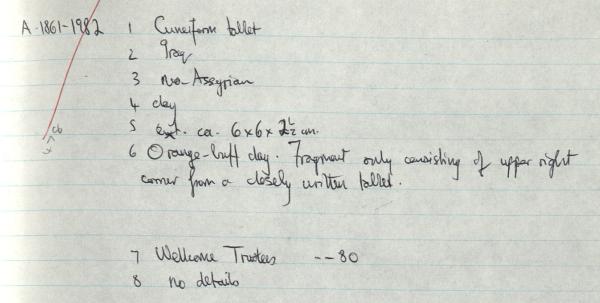 A.1861-1982 1 Cuneiform tablet
2 Iraq
3 neo-Assyrian
4 clay
5 ext. ca. 6x6x2½ cm.
6 Orange-buff clay. Fragment only consisting of upper right
corner from a closely written tablet.
7 Wellcome Trustees --80
8 no details